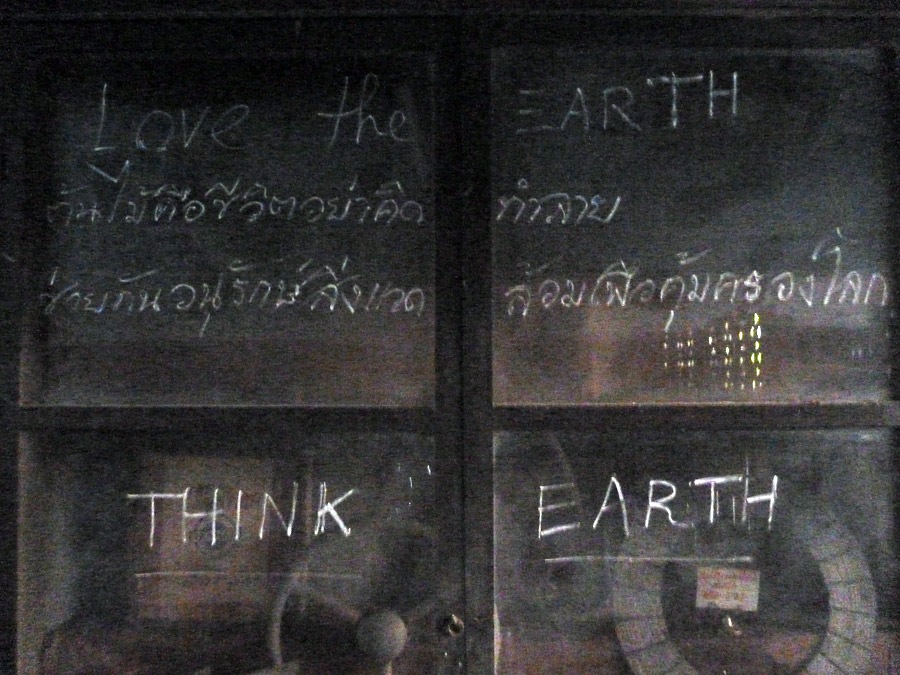 Love the EARTH
ต้นไม้คือชีวิตอย่าคิดทำลาย
ช่วยกันอนุรักษ์สิ่งแวดล้อมเพื่อคุ้มครองโลก
THINK EARTH